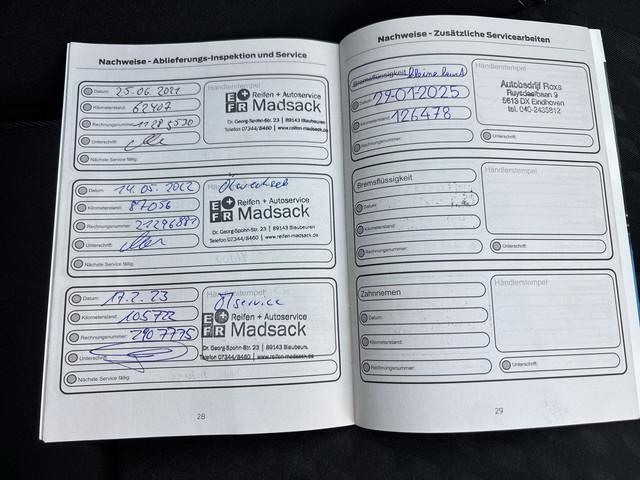 Nachweise - Ablieferungs-Inspektion und Service
Datum: 25.06.2021
Kilometerstand: 62407
Rechnungsnummer:
Unterschrift:
Nächste Service fällig:
Händlerstempel
EFR Reifen + Autoservice
Madsack
Dr. Georg-Spohn-Str. 23 | 89143 Blaubeuren
Telefon 07344/8460 | www.reifen-madsack.de
Datum: 14.05.2022
Kilometerstand: 87056
Rechnungsnummer: 21296881
Unterschrift:
Nächste Service fällig:
Ölwechsel
EFR Reifen + Autoservice
Madsack
Dr. Georg-Spohn-Str. 23 | 89143 Blaubeuren
Telefon 07344/8460 | www.reifen-madsack.de
Datum: 17.2.23
Kilometerstand: 105722
Rechnungsnummer: 2907775
Unterschrift:
Nächste Service fällig:
Händlerstempel
Ölservice
EFR Reifen + Autoservice
Madsack
Dr. Georg-Spohn-Str. 23 | 89143 Blaubeuren
Telefon 07344/8460 | www.reifen-madsack.de
28
Nachweise - Zusätzliche Servicearbeiten
Bremsflüssigkeit kleine
Datum: 29-01-2025
Kilometerstand: 126478
Rechnungsnummer:
Händlerstempel
Autobedrijf Roxs
Ruysdaelbaan 9
5613 DX Eindhoven
tel. 040-2435812
Unterschrift:
Bremsflüssigkeit
Datum:
Kilometerstand:
Rechnungsnummer:
Händlerstempel
Unterschrift:
Zahnriemen
Datum:
Kilometerstand:
Rechnungsnummer:
Händlerstempel
Unterschrift:
29